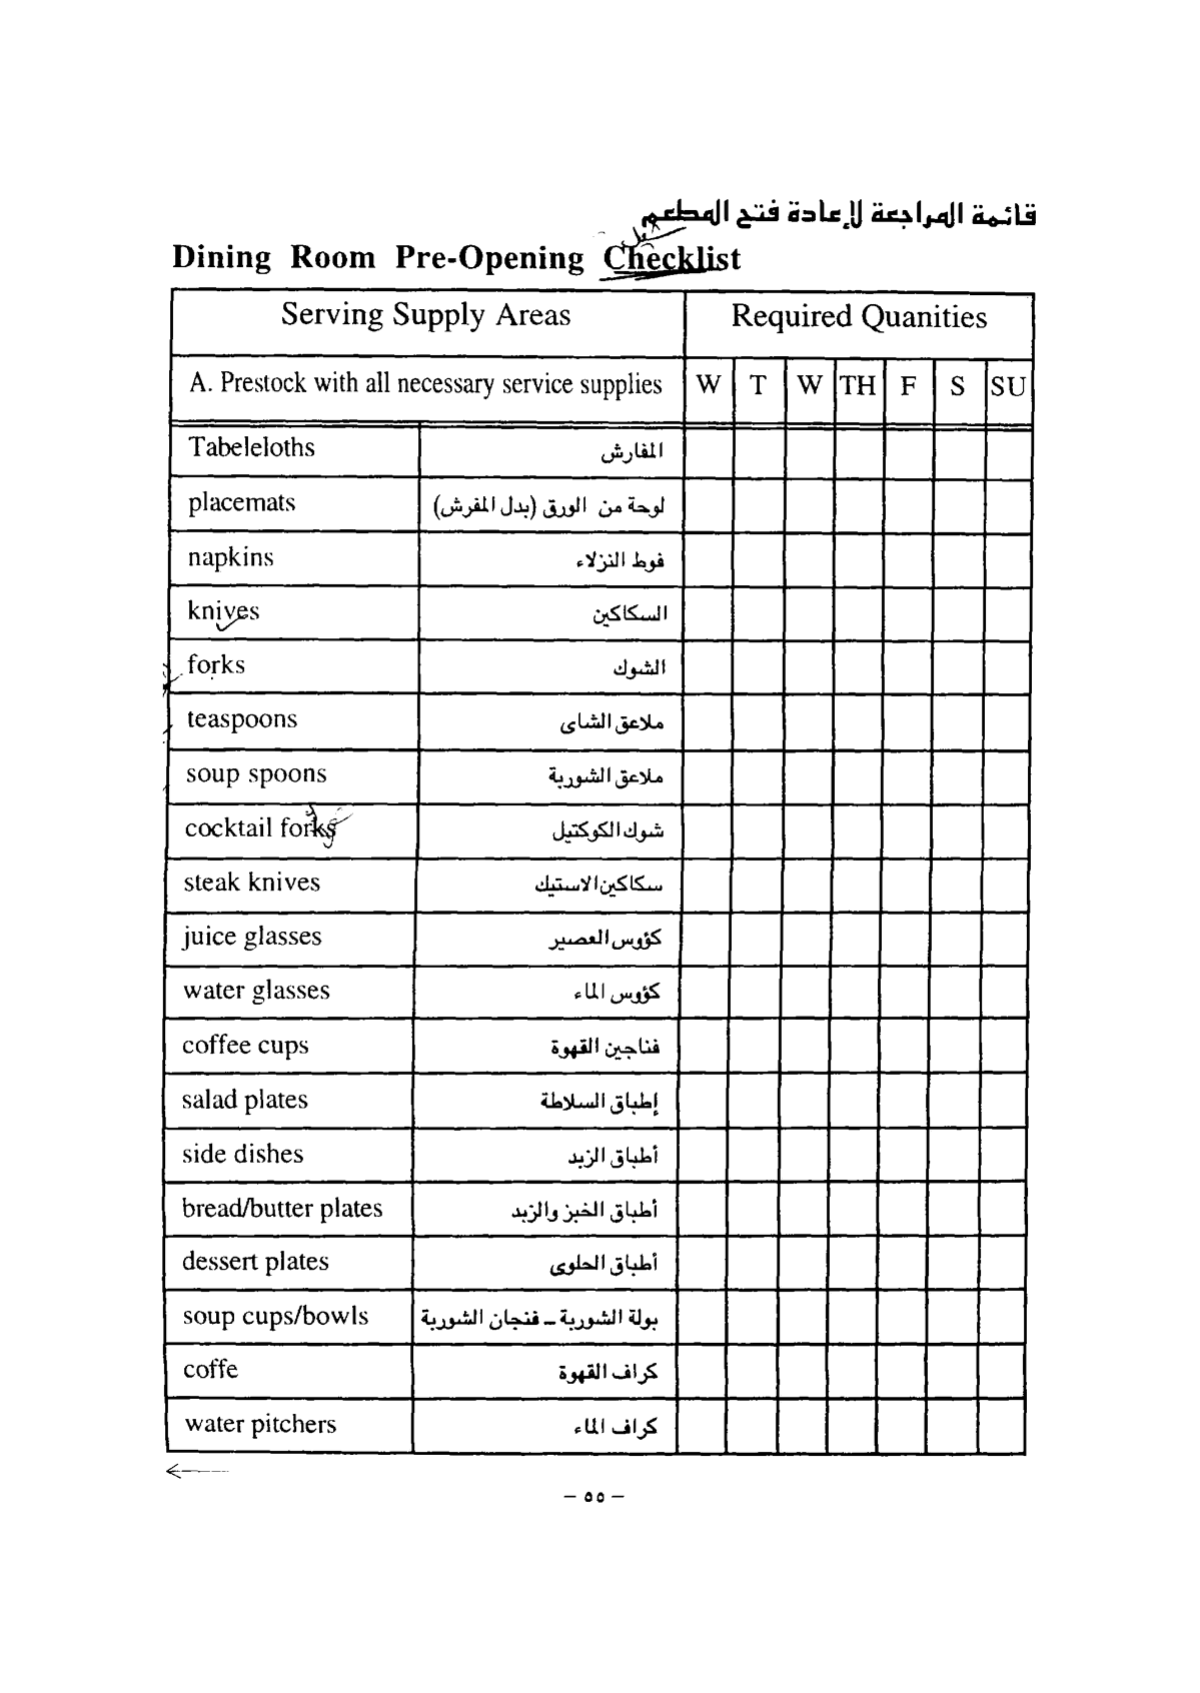 قائمة المراجعة لإعادة فتح المطعم
Dining Room Pre-Opening Checklist
Serving Supply Areas Required Quanities
A. Prestock with all necessary service supplies W T W TH F S SU
Tabeleloths المفارش
placemats لوحة من الورق (بدل المفرش)
napkins فوط النزلاء
knives السكاكين
forks الشوك
teaspoons ملاعق الشاى
soup spoons ملاعق الشوربة
cocktail forks شوك الكوكتيل
steak knives سكاكين الاستيك
juice glasses كؤوس العصير
water glasses كؤوس الماء
coffee cups فناجين القهوة
salad plates إطباق السلاطة
side dishes أطباق الزبد
bread/butter plates أطباق الخبز والزبد
dessert plates أطباق الحلوى
soup cups/bowls بولة الشوربة ـ فنجان الشوربة
coffe كراف القهوة
water pitchers كراف الماء
– ٥٥ –